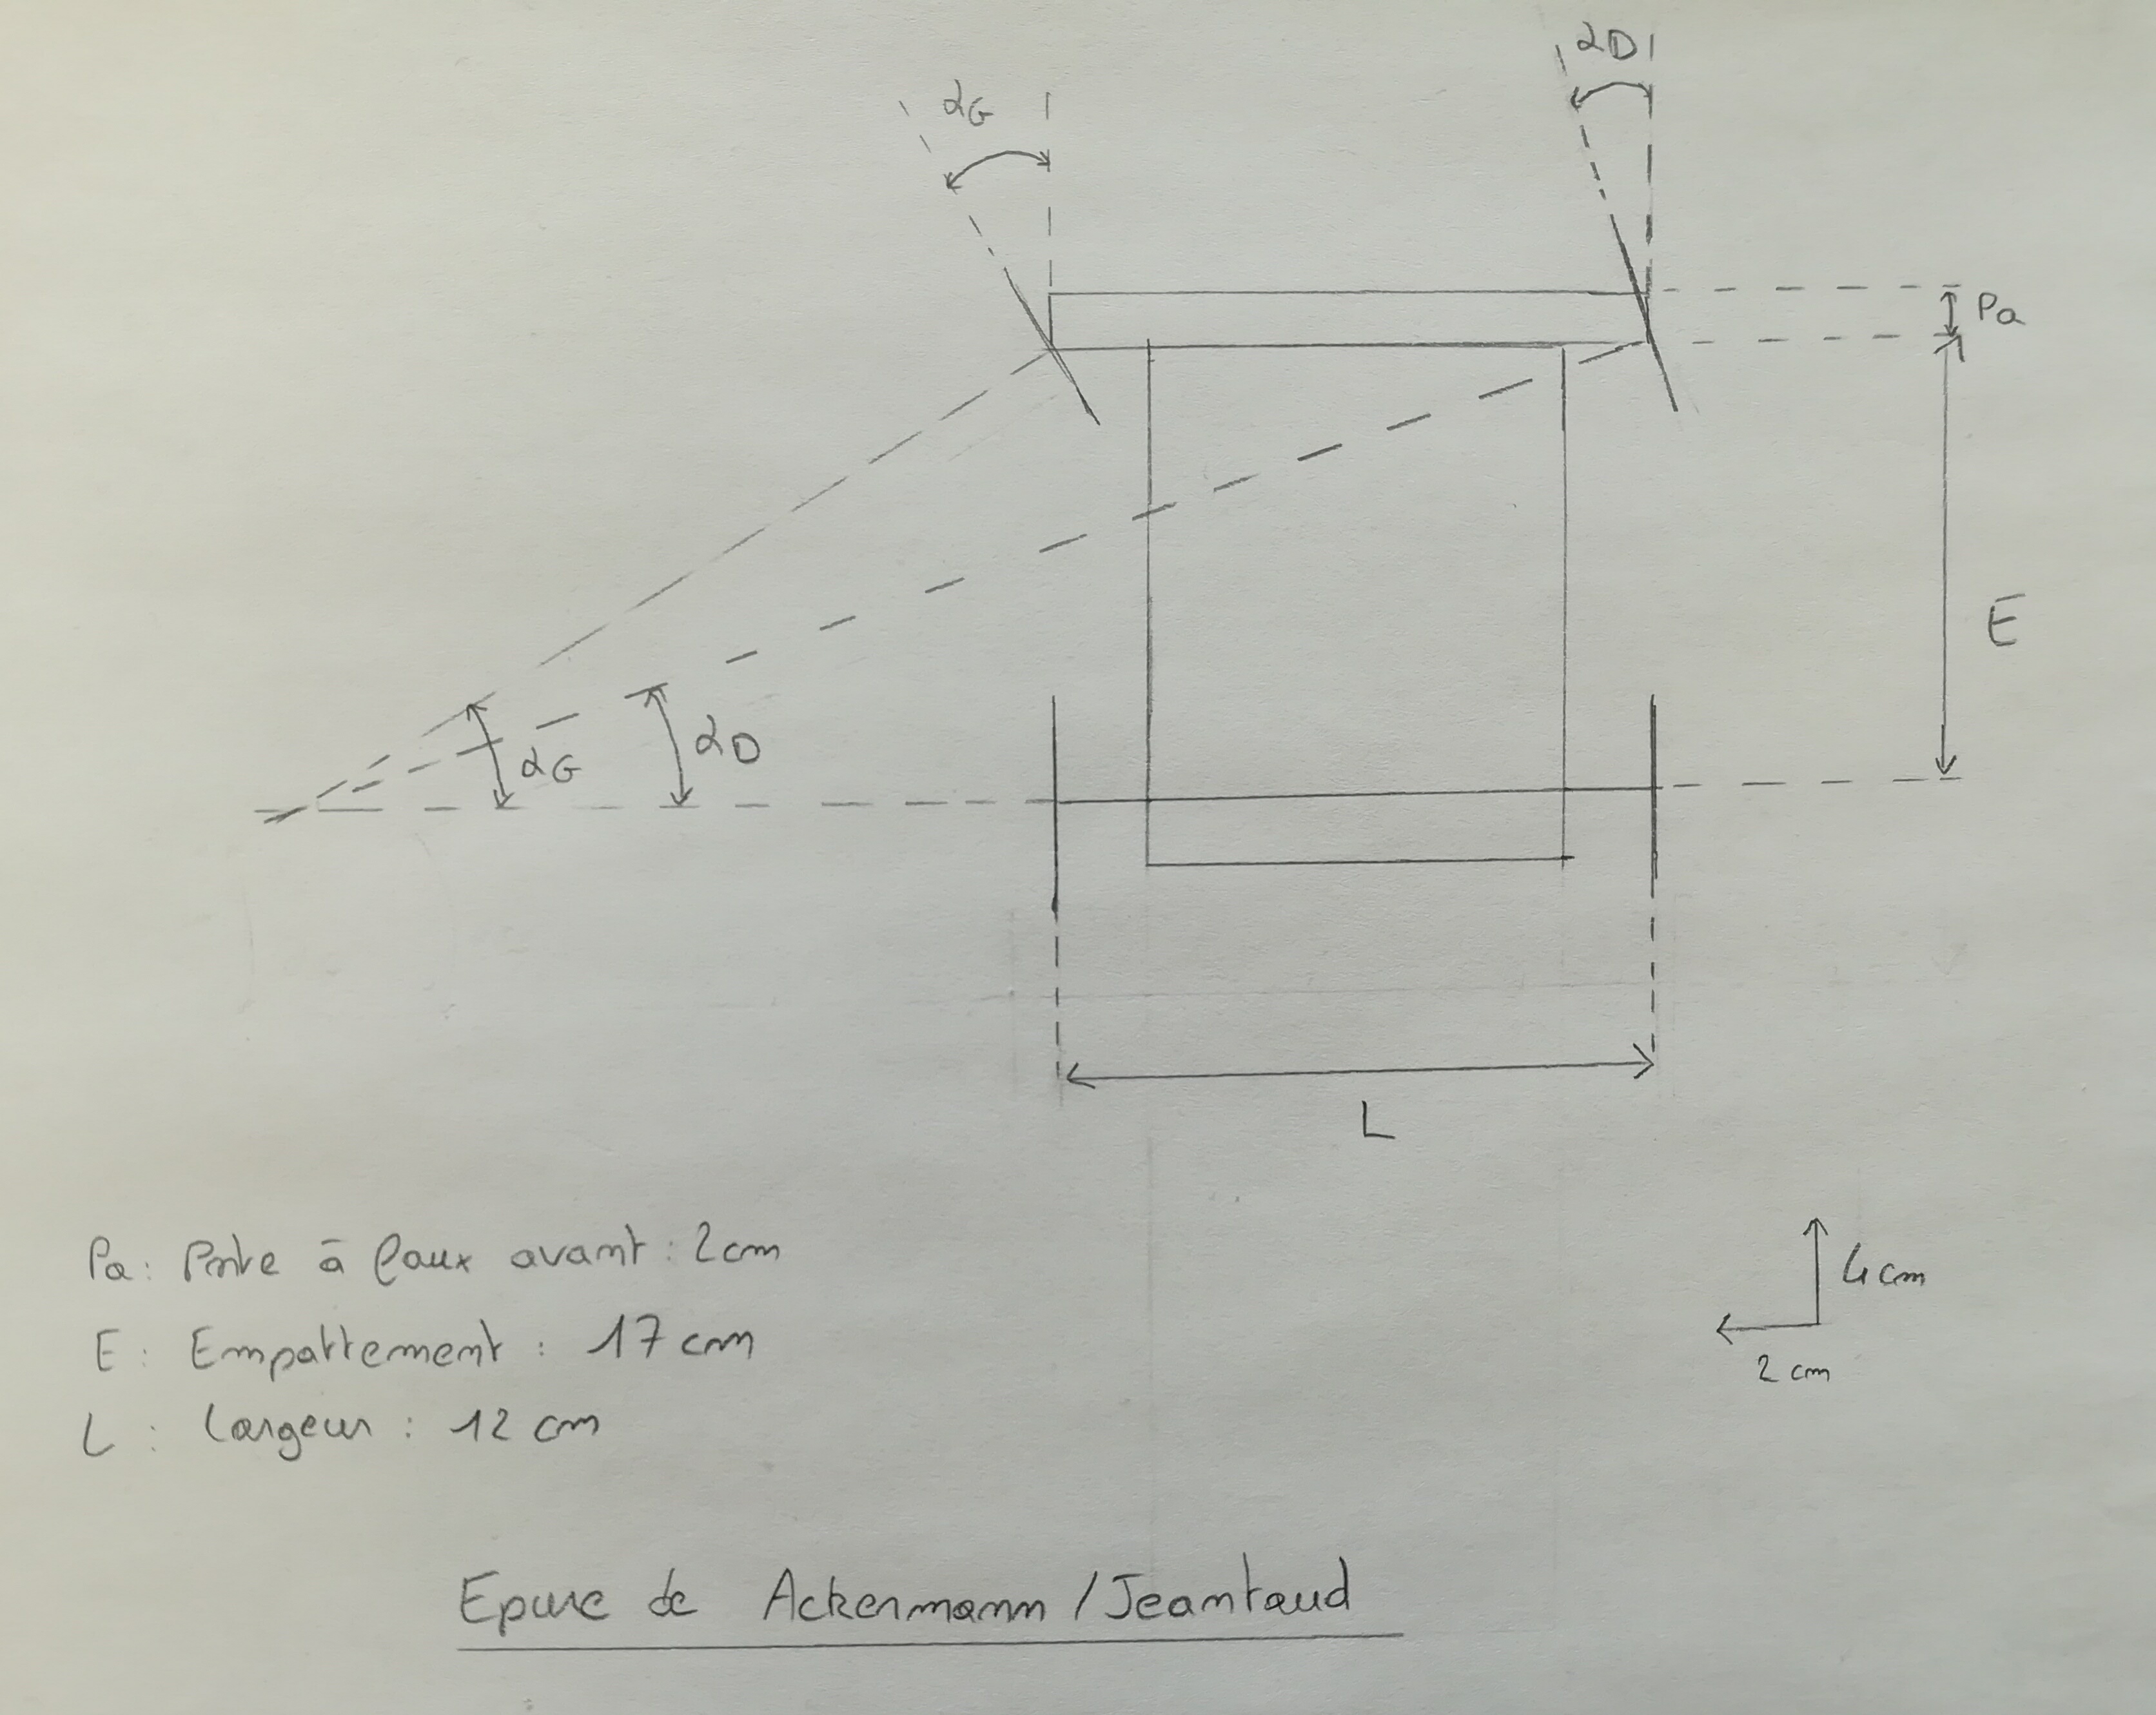 αG
αD
Pa
E
αG
αD
L
Pa: Porte à faux avant : 2cm
E : Empattement : 17 cm
L : largeur : 12 cm
4cm
2 cm
Epure de Ackermann / Jeantaud